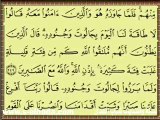 مِنْهُمْ فَلَمَّا جَاوَزَهُ هُوَ وَالَّذِينَ ءَامَنُوا مَعَهُ قَالُوا
لَا طَاقَةَ لَنَا الْيَوْمَ بِجَالُوتَ وَجُنُودِهِ قَالَ الَّذِينَ
يَظُنُّونَ أَنَّهُم مُّلَاقُوا اللَّهِ كَم مِّن فِئَةٍ قَلِيلَةٍ
غَلَبَتْ فِئَةً كَثِيرَةً بِإِذْنِ اللَّهِ وَاللَّهُ مَعَ الصَّابِرِينَ
وَلَمَّا بَرَزُوا لِجَالُوتَ وَجُنُودِهِ قَالُوا رَبَّنَا أَفْرِغْ
عَلَيْنَا صَبْرًا وَثَبِّتْ أَقْدَامَنَا وَانصُرْنَا عَلَى الْقَوْمِ